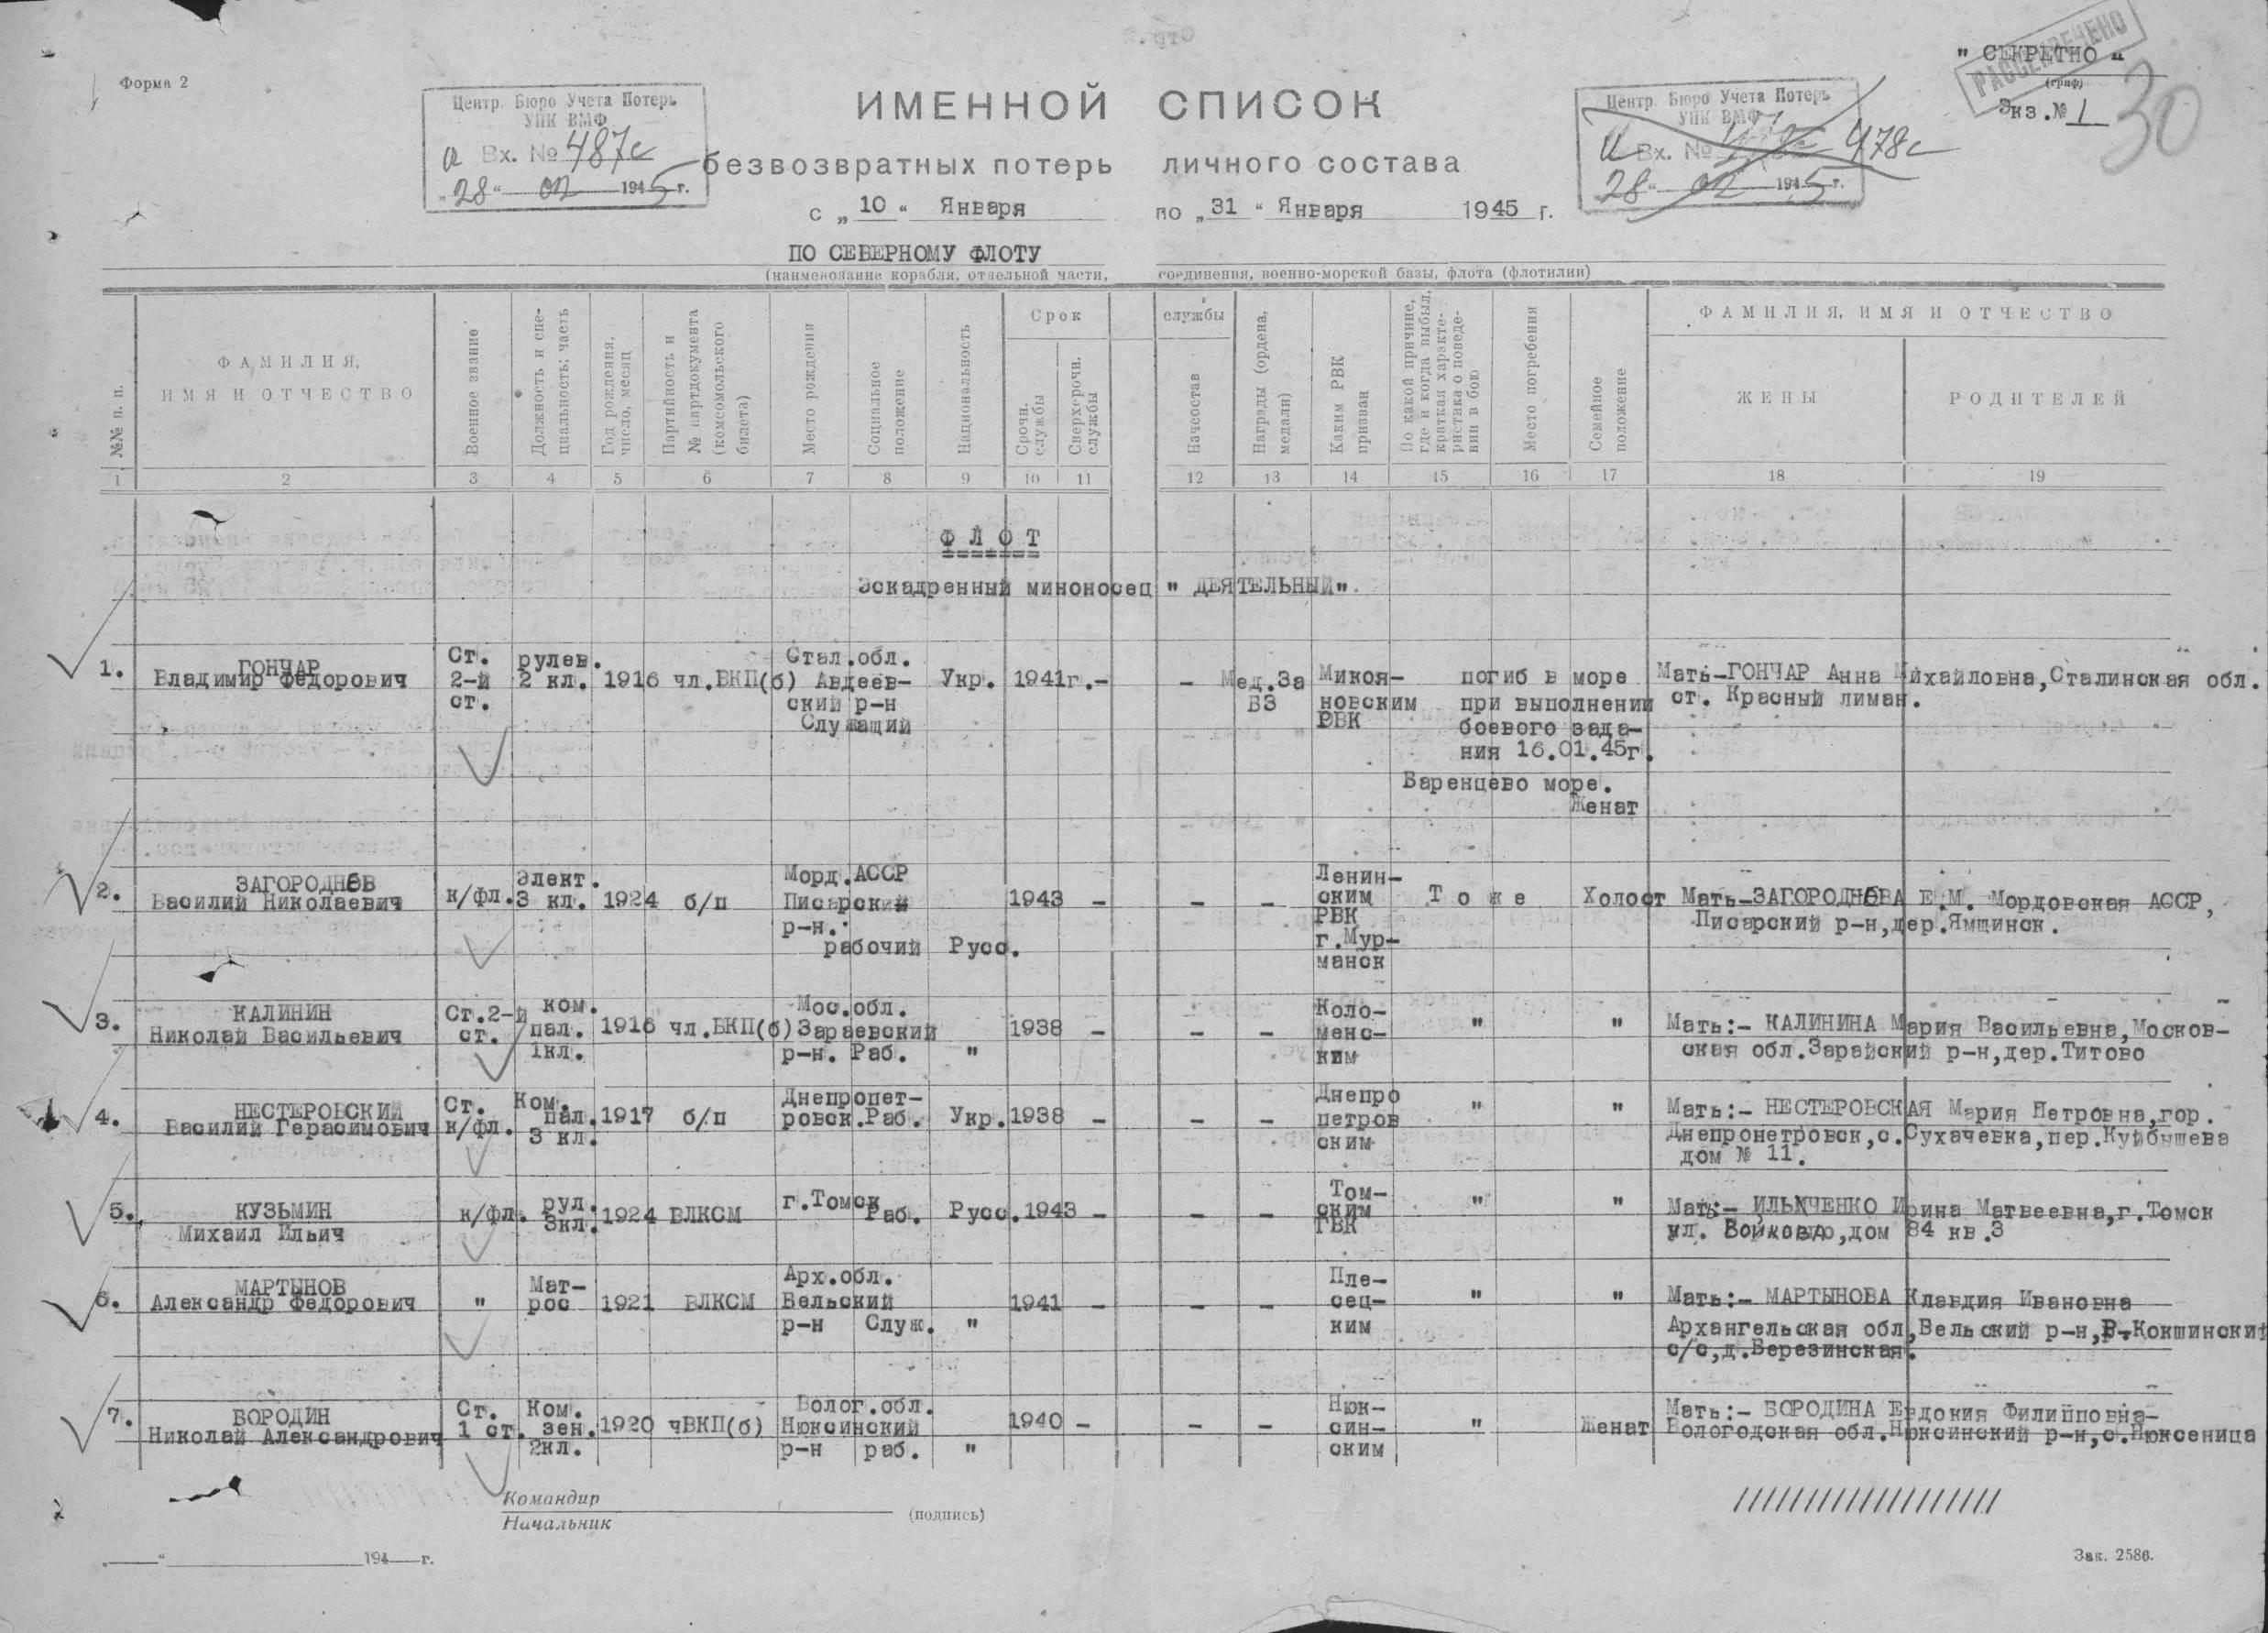 " СЕКРЕТНО "
РАССЕКРЕЧЕНО
(гриф)
Экз.№ 1
30
Форма 2
Центр. Бюро Учета Потерь
УПК ВМФ
Вх. № 487с
"28" 02 1945 г.
Центр. Бюро Учета Потерь
УПК ВМФ
Вх. № 478с
28 " 02 1945 г.
ИМЕННОЙ СПИСОК
безвозвратных потерь личного состава
с „ 10 “ Января по „ 31 “ Января 1945 г.
ПО СЕВЕРНОМУ ФЛОТУ
(наименование корабля, отдельной части, соединения, военно-морской базы, флота (флотилии)
№№ п. п.
ФАМИЛИЯ,
ИМЯ И ОТЧЕСТВО
Военное звание
Должность и спе-
циальность; часть
Год рождения,
число, месяц
Партийность и
№ партдокумента
(комсомольского
билета)
Место рождения
Социальное
положение
Национальность
Срок службы
Срочн.
службы
Сверхсрочн.
службы
Начсостав
Награды (ордена,
медали)
Каким РВК
призван
По какой причине,
где и когда выбыл,
краткая характе-
ристика о поведе-
нии в бою
Место погребения
Семейное
положение
ФАМИЛИЯ, ИМЯ И ОТЧЕСТВО
ЖЕНЫ
РОДИТЕЛЕЙ
1 2 3 4 5 6 7 8 9 10 11 12 13 14 15 16 17 18 19
ФЛОТ
Эскадренный миноносец " ДЕЯТЕЛЬНЫЙ".
1. ГОНЧАР
Владимир Федорович
Ст.
2-й
ст.
рулев.
2 кл.
1916 чл.ВКП(б)
Стал.обл.
Авдеев-
ский р-н
Служащий
Укр. 1941г.- -
Мед.За
БЗ
Микоя-
новским
РВК
погиб в море
при выполнении
боевого зада-
ния 16.01.45г.
Баренцево море.
Женат
Мать-ГОНЧАР Анна Михайловна,Сталинская обл.
ст. Красный лиман.
2. ЗАГОРОДНЕВ
Василий Николаевич
к/фл.
Элект.
3 кл.
1924 б/п
Морд.АССР
Писарский
р-н.
рабочий Русс.
1943 - - -
Ленин-
ским
РВК
г.Мур-
манск
Тоже Холост
Мать-ЗАГОРОДНЕВА Е.М. Мордовская АССР,
Писарский р-н,дер.Ямщинск.
3. КАЛИНИН
Николай Васильевич
Ст.2-й
ст.
ком.
пал.
1кл.
1916 чл.ВКП(б)
Мос.обл.
Зараевский
р-н. Раб. "
1938 - - -
Коло-
менс-
ким
" "
Мать:- КАЛИНИНА Мария Васильевна,Москов-
ская обл.Зарайский р-н,дер.Титово
4. НЕСТЕРОВСКИЙ
Василий Герасимович
Ст.
к/фл.
Ком.
пал.
3 кл.
1917 б/п
Днепропет-
ровск.Раб. Укр.
1938 - - -
Днепро
петров
ским
" "
Мать:- НЕСТЕРОВСКАЯ Мария Петровна,гор.
Днепропетровск,с.Сухачевка,пер.Куйбышева
дом № 11.
5. КУЗЬМИН
Михаил Ильич
к/фл.
рул.
3кл.
1924 ВЛКСМ
г.Томск
Раб. Русс.
1943 - - -
Том-
ским
ГВК
" "
Мать:- ИЛЬЧЕНКО Ирина Матвеевна,г.Томск
ул. Войкова,дом 84 кв.3
6. МАРТЫНОВ
Александр Федорович
"
Мат-
рос
1921 ВЛКСМ
Арх.обл.
Вельский
р-н Служ. "
1941 - - -
Пле-
сец-
ким
" "
Мать:- МАРТЫНОВА Клавдия Ивановна
Архангельская обл,Вельский р-н,В-Кокшинский
с/с,д.Березинская.
7. БОРОДИН
Николай Александрович
Ст.
1 ст.
Ком.
зен.
2кл.
1920 чВКП(б)
Волог.обл.
Нюксинский
р-н раб. "
1940 - - -
Нюк-
син-
ским
" Женат
Мать:- БОРОДИНА Евдокия Филипповна-
Вологодская обл.Нюксинский р-н,с.Нюксеница
Командир
Начальник
(подпись)
„ “ 194 г.
Зак. 2586.